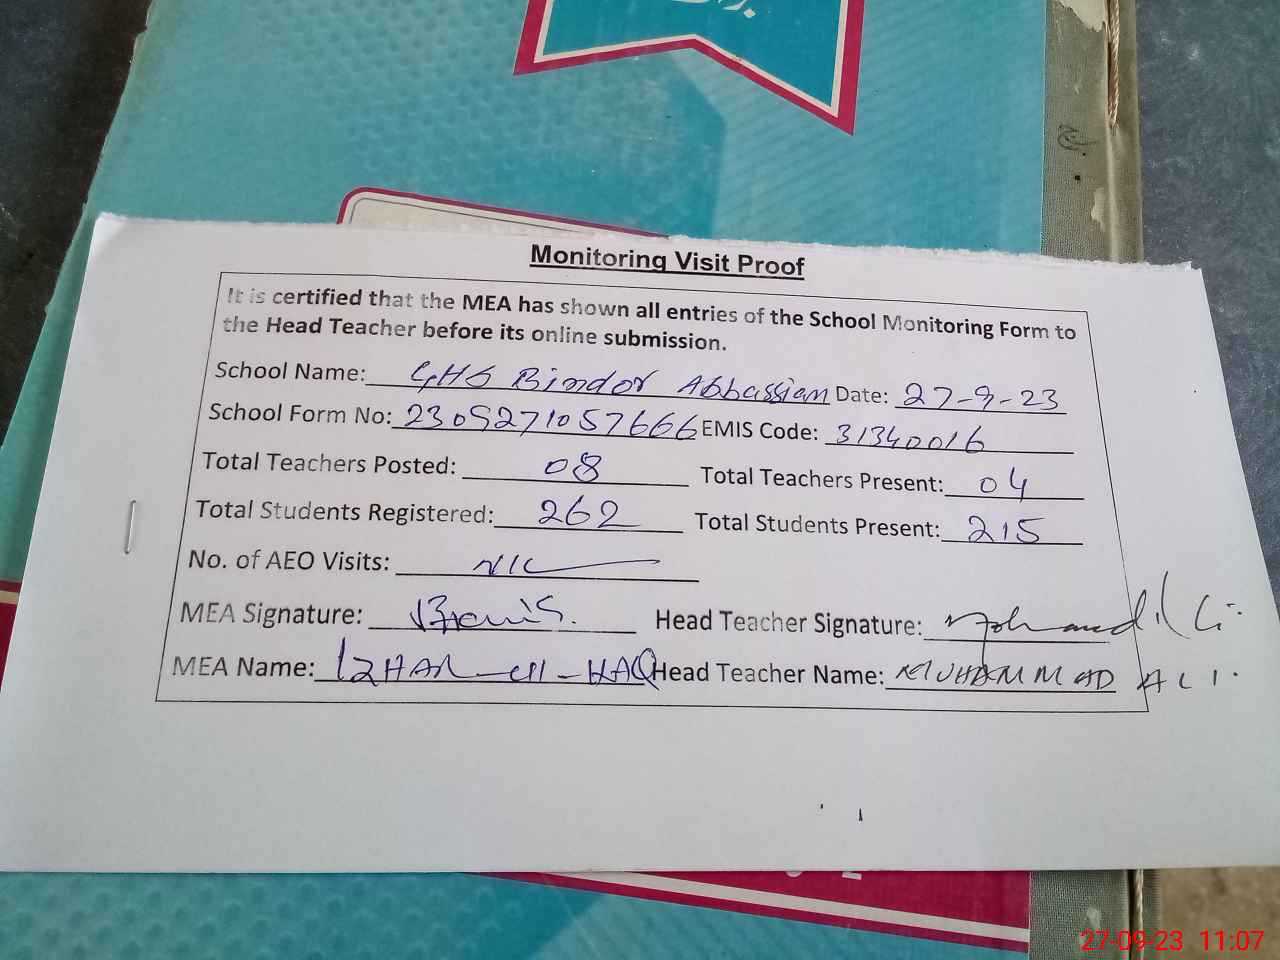 Monitoring Visit Proof
It is certified that the MEA has shown all entries of the School Monitoring Form to
the Head Teacher before its online submission.
School Name: GHS Bindor Abbassian Date: 27-9-23
School Form No: 2309271057666 EMIS Code: 31340016
Total Teachers Posted: 08 Total Teachers Present: 04
Total Students Registered: 262 Total Students Present: 215
No. of AEO Visits: NIL
MEA Signature: Head Teacher Signature:
MEA Name: IZHAR-UL-HAQ Head Teacher Name: MUHAMMAD ALI.
27-09-23 11:07